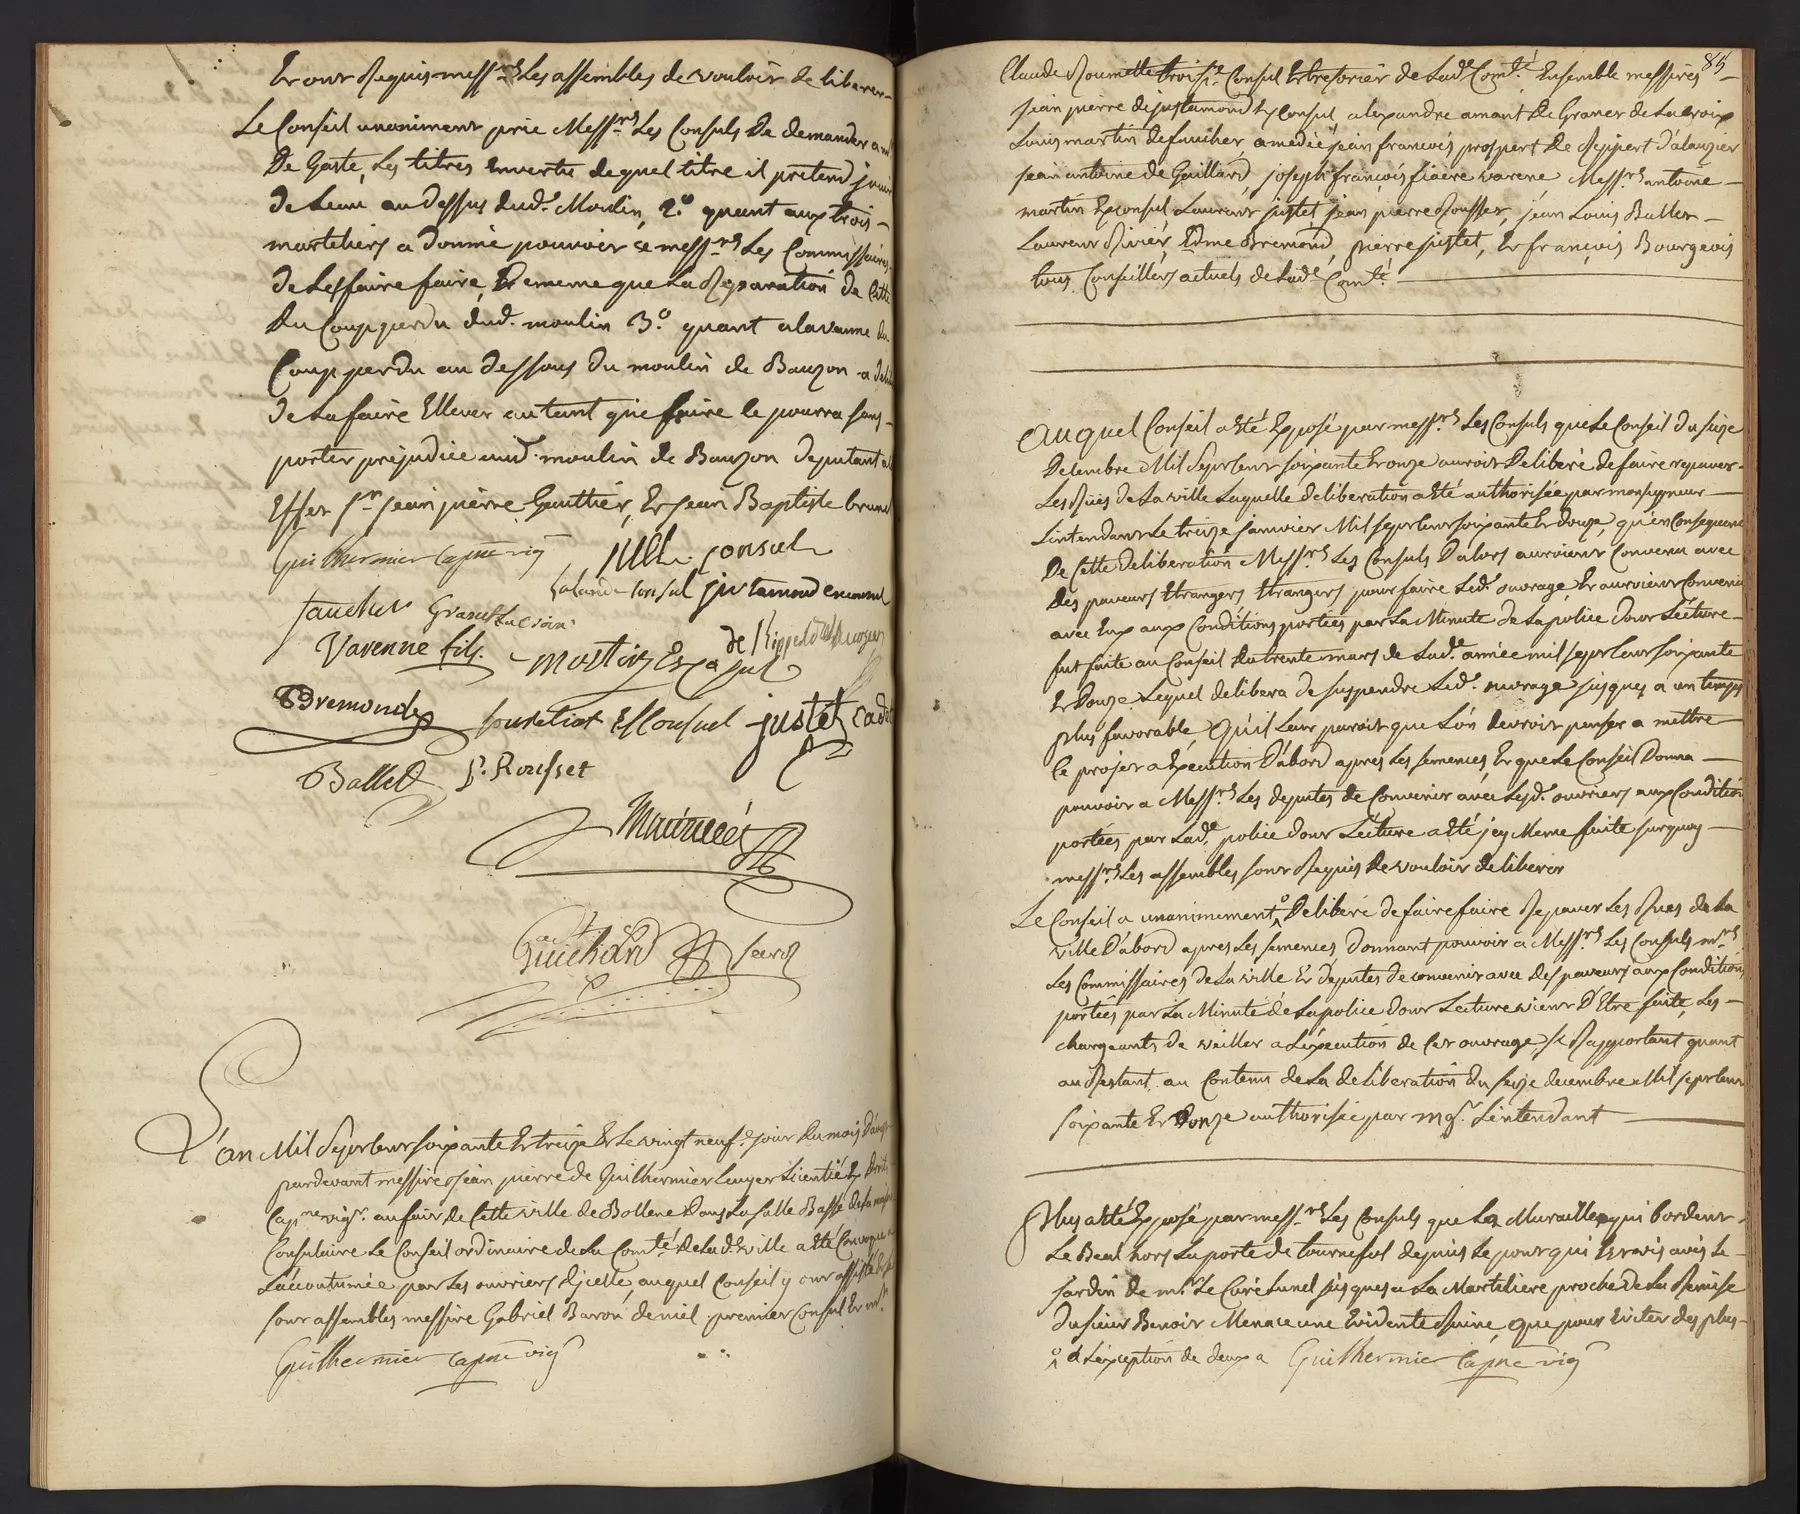 Et ont Requis messrs Les assemblés de vouloir deliberer
Le Conseil unaniment prie Messrs Les Consuls De demander a mr
De Gaste, Les titres En vertu de quel titre il pretend jouir
de Leau au dessus dud. Moulin, 2.° quant aux trois
marteliers a donné pouvoir ce messrs Les Commissaires
de Les faire faire, De meme que La Reparation de Cette
Du Coup perdu dud. moulin 3.° quant a la vanne du
Coup perdu au dessous du moulin de Bauzon a
de La faire Ellever autant que faire le pourra sans
porter prejudice aud. moulin de Bauzon deputant a
Effet sr jean pierre Gauthier, Et jean Baptiste brun
Guilhermier capne vigr
consul
Lalande Consul justamond exconsul
fauchier Graneslacroix
Varenne fils. martin Exconsul
Bremond Exconsul justet cadet
Ballet P. Rousset
Guichard secre
L'an Mil Sept Cent soixante Et treize Et Le vingt neufe jour Du mois D'aout
pardevant messire jean pierre de Guilhermier Lauyer Licentié Ez Droits
Capne vigr. au fait de Cette ville de Bollene Dans La salle Basse de La maison
Consulaire Le Conseil ordinaire de La Comté de Lad. ville a eté Convoqué a
L'accoutumée par Les ouvriers d'jcelle, auquel Conseil y ont assisté
sont assemblés messire Gabriel Baron de niel premier Consul Et mr
Guilhermier capne vigr
85
Claude Roumette troisie Consul Et tresorier de Lad. Comté Ensemble messires
jean pierre de justamond Exconsul, alexandre amant De Granet de Lacroix
Louis martin de fauchier, amedié jean francois prospert De Rippert d'alauzier
jean antoine de Gaillard, joseph françois fiacre varene Messrs antoine
martin Exconsul Laurent justet jean pierre Rousset, jean Louis Ballet
Laurent Rivier, Edme Bremond, pierre justet, Et françois Bourgeois
tous Conseillers actuels de Lade Comté
Auquel Conseil a eté Exposé par messrs Les Consuls que Le Conseil du seize
Decembre Mil Sept Cent soixante Et onze auroit Deliberé de faire repaver
Les Rües de La ville Laquelle deliberation a eté authorisée par monseigneur
L'intendant Le treize janvier Mil sept Cent soixante Et douze, qu'en Consequence
De Cette deliberation Messrs Les Consuls D'alors auroient Convenu avec
Des paveurs Etrangers Etrangers pour faire Led. ouvrage Et auroient Convenu
avec Eux aux Conditions portées par La Minute de La police Dont Lecture
fut faite au Conseil Du trente mars de Lade année mil sept Cent soixante
Et Douze Lequel delibera de suspendre Led. ouvrage jusques a un temps
plus favorable, Qu'il Leur paroit que L'on devroit penser a mettre
Ce projet a Execution D'abord apres Les semences, Et que Le Conseil Donna
pouvoir a Messrs Les deputes de Convenir avec Lesd. ouvriers aux Conditions
portées par Lade police dont Lecture a eté jey Meme faite surquoy
messrs Les assemblés sont Requis De vouloir deliberer
Le Conseil a unanimement ° Deliberé de faire faire Repaver Les Rues de La
ville D'abord apres Les semences, donnant pouvoir a Messrs Les Consuls mrs
Les Commissaires de La ville Et deputes de convenir avec Des paveurs aux Conditions
portées par La Minute de La police dont Lecture vient D'Etre faite, Les
chargeants de veiller a L'execution de Cet ouvrage, se Rapportant quant
au Restant au Contenu de La deliberation du seize decembre Mil sept Cent
soixante Et Donze authorisée par mgr L'intendant
Plus a eté Exposé par messrs Les Consuls que Les Murailles qui bordent
Le Beal hors La porte de tournefol depuis Le pont qui Est vis avis Le
jardin de mr Le Curé Lunel jusques a La Marteliere proche de La Remise
du sieur Benoit Menace une Evidente Ruine, que pour Eviter des plus
° a L'exception de deux a Guilhermier capne vigr